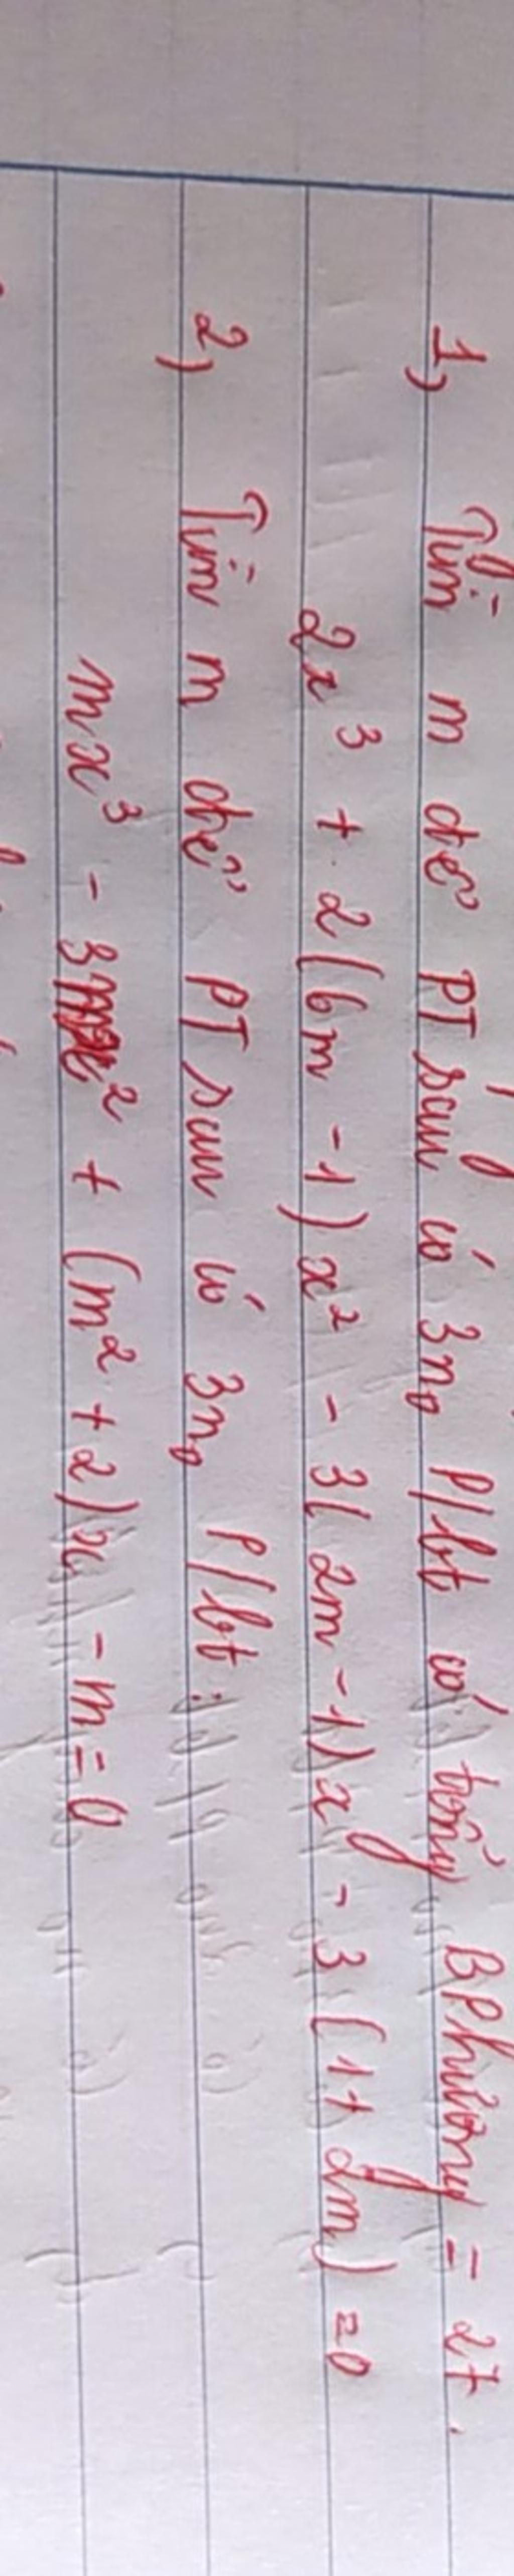 1) Tìm m để PT sau có 3n₀ P/bt có tổng BPhương = 27.
2x³ + 2(6m - 1)x² - 3(2m - 1)x - 3(1 + 2m) = 0
2) Tìm m để PT sau có 3n₀ P/bt:
mx³ - 3mx² + (m² + 2)x - m = 0